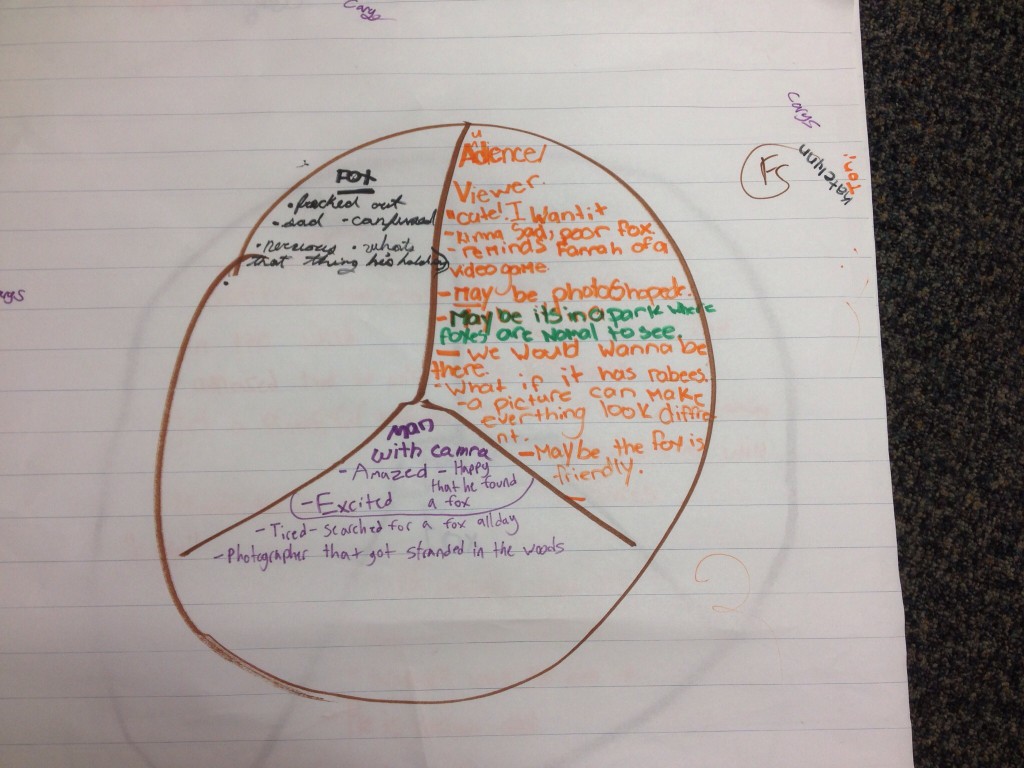 Carys
Carys
FS
Katelynn
Toni
Fox
• freaked out
• sad • confused
• nervous • whats
that thing his holding
Audience/
Viewer.
"cute! I want it
- Kinna sad, poor fox
- reminds Farrah of a
video game
- May be photoshoped.
- May be its in a park where
foxes are Normal to see.
- We would wanna be
there.
- What if it has rabees.
- a picture can make
everthing look differe
nt.
- Maybe the fox is
friendly.
-
Man
with camra
- Amazed - Happy
that he found
- Excited a fox
- Tired - searched for a fox all day
- Photographer that got stranded in the woods
2